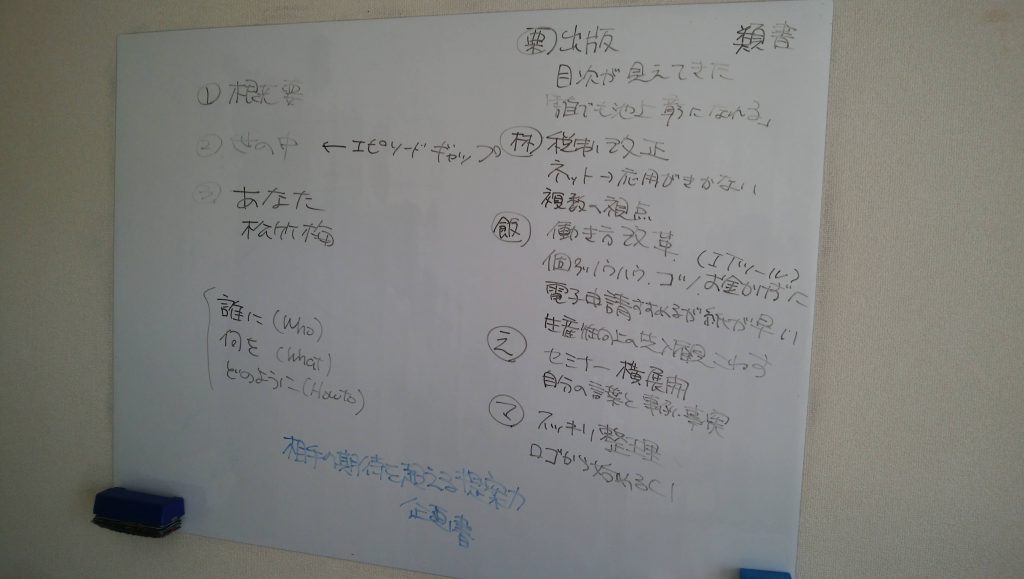 ① 概要
② 世の中 ← エピソード ギャップ
③ あなた
松竹梅
誰に (Who)
何を (What)
どのように (Howto)
相手の期待に応える提案力
企画書
栗 出版 類書
目次が見えてきた
「誰でも池上彰になれる」
林 税制改正
ネット→応用がきかない
複数の視点
飯 働き方改革 (ITツール)
個別ノウハウ、コツ/お金かけずに
電子申請すすめるが紙が早い
生産性向上の先入観こわす
え セミナー横展開
自分の言葉と事例、事実
マ スッキリ整理
ロゴから始めるCI